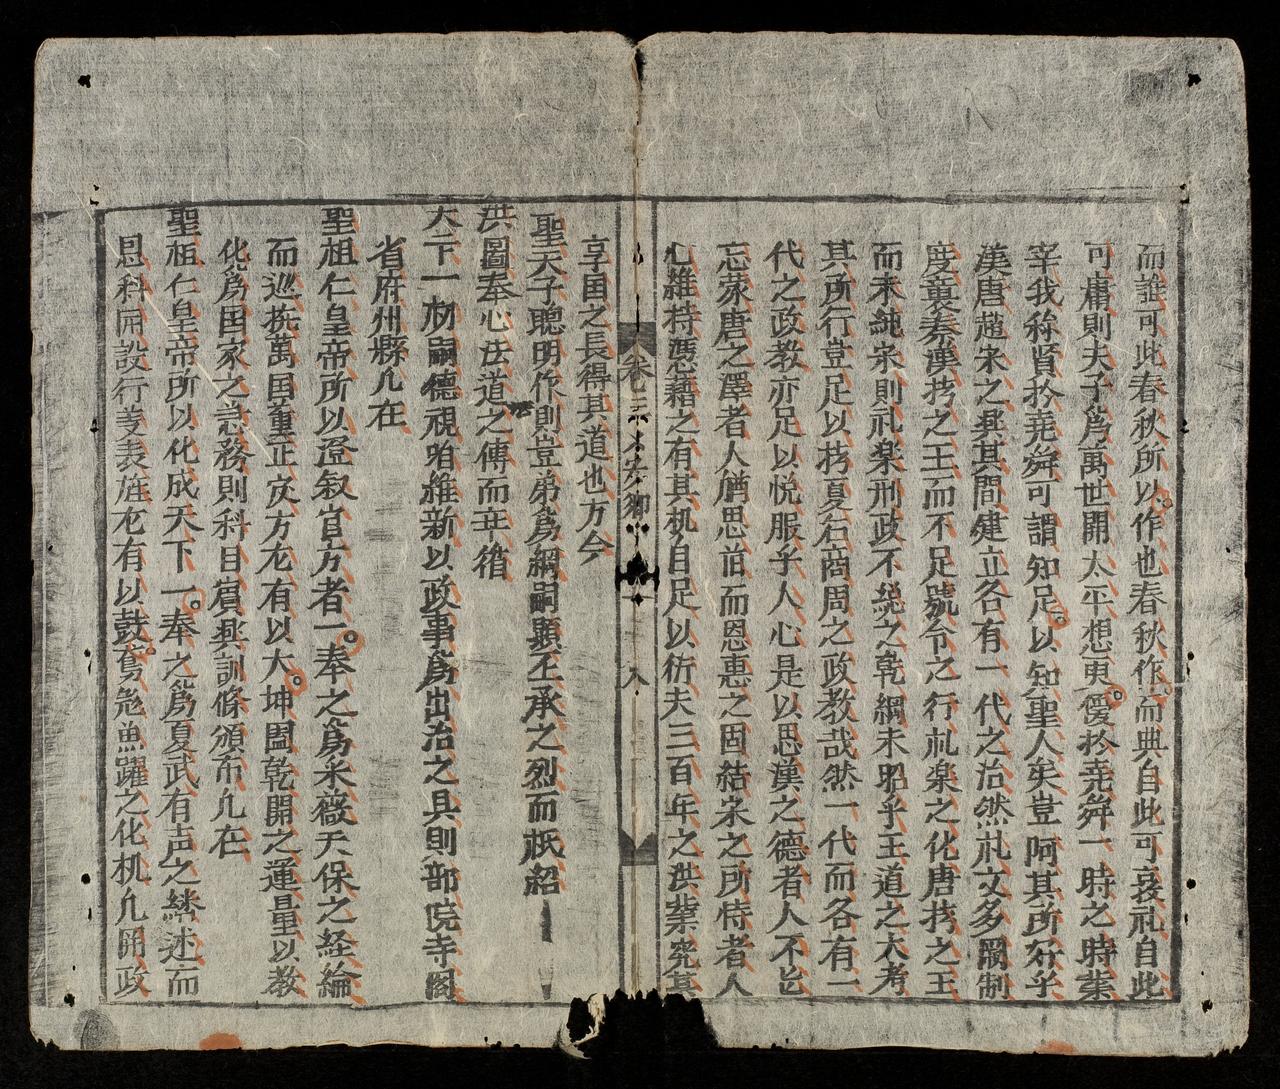 而誰可此春秋所以作也春秋作而典自此可衰礼自此
可庸則夫子爲萬世開太平想更優於堯舜一時之時業
宰我称賢於堯舜可謂知足以知聖人矣豈阿其所好乎
漢唐趙宋之興其間建立各有一代之治然礼文多闕制
度襲秦漢拵之王而不足號令之行礼楽之化唐拵之王
而未純宋則礼楽刑政不競之乾綱未昭乎王道之大考
其所行豈足以拵夏石商周之政教哉然一代而各有一
代之政教亦足以悦服乎人心是以思漢之德者人不忘
忘家唐之澤者人猶思前而恩惠之固結宋之所恃者人
心維持憑藉之有其机自足以衍夫三百年之洪業究其
卷三 大安鄉 八
享国之長得其道也方今
聖天子聰明作則豈弟爲綱嗣顯丕承之烈而祇紹
洪圖奉心法道之傳而丕循
天下一初嗣德視昭維新以政事爲出治之具則部院寺閣
省府州縣凢在
聖祖仁皇帝所以澄叙官方者一奉之爲采薇天保之経綸
而巡撫萬国董正庶方尤有以大坤闔乾開之運量以教
化爲国家之急務則科目賔興訓條頒布凢在
聖祖仁皇帝所以化成天下一奉之爲夏武有声之継述而
恩科開設行義表旌尤有以鼓鳶飛魚躍之化机凢開政